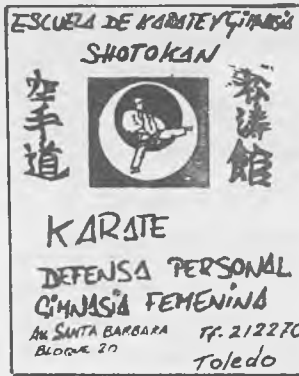 ESCUELA DE KARATE Y GIMNASIA
SHOTOKAN
空手道
松濤館
KARATE
DEFENSA PERSONAL
GIMNASIA FEMENINA
AV. SANTA BARBARA
BLOQUE 20
TF. 212270
Toledo